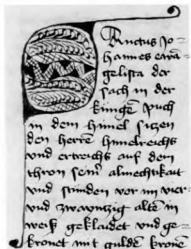 Sanctus Jo
hannes ewa
gelista der
sach in der
künge puch
in dem himel siczen
den herrē himelreichs
vnd ertreichs auf dem
thron seiner almechtikait
vnd stunden vor im vier
vnd zwainczig alte in
weß geklaidet vnd ge
krönet mit guldē kronē